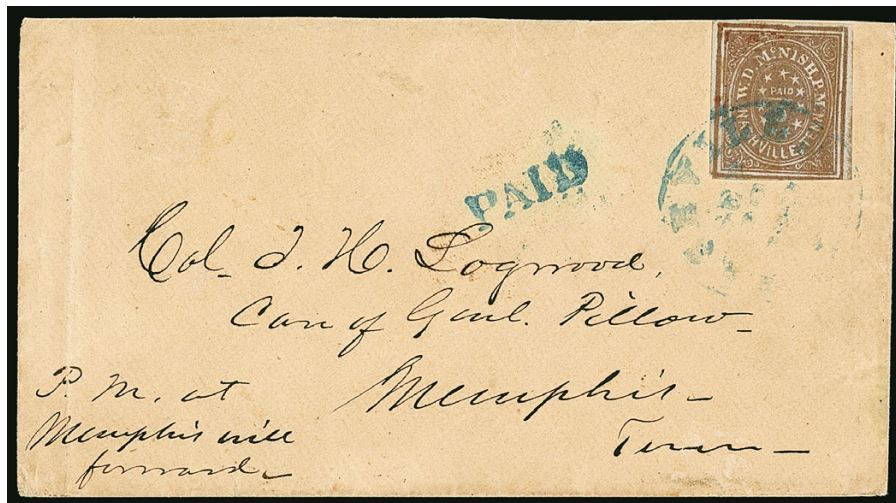 W.D. McNISH, P.M.
PAID
NASHVILLE, TENN
PAID
Col. T. H. Logwood,
Care of Genl. Pillow
Memphis
Tenn
P. M. at
Memphis will
forward